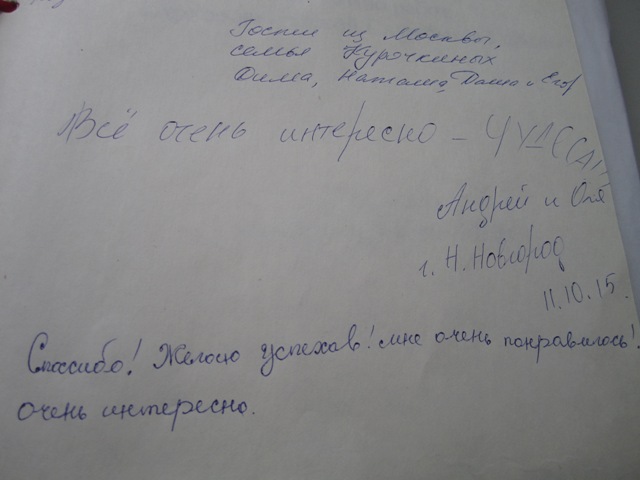 Гости из Москвы,
семья Курочкиных
Дима, Наталия, Даша и Егор
Всё очень интересно – ЧУДЕССА!!
Андрей и Оля
г. Н. Новгород
11.10.15.
Спасибо! Желаю успехав! мне очень понравилось!
очень интересно.